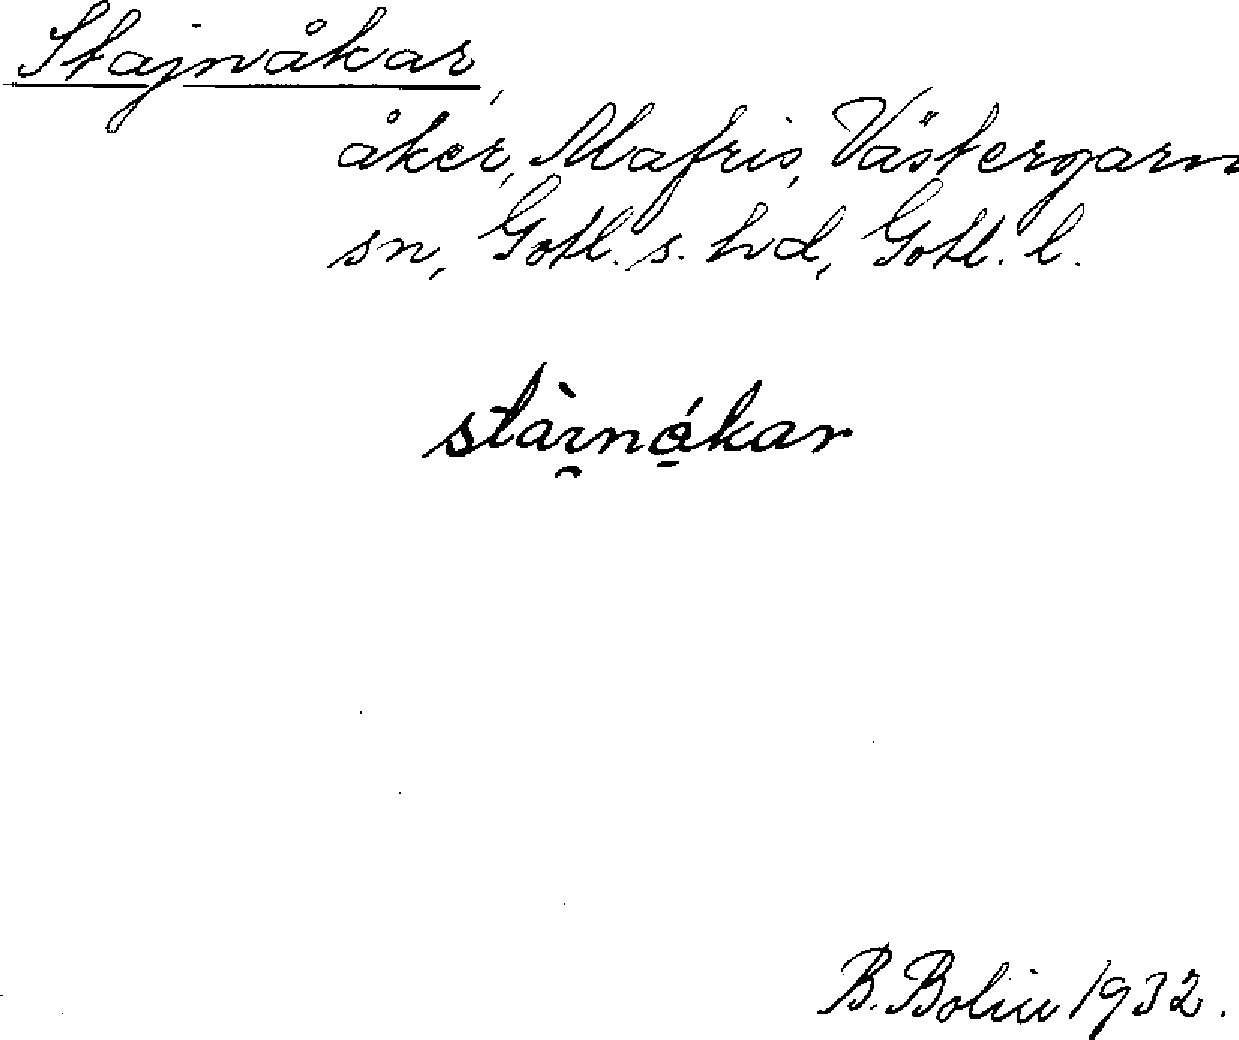 Stajnåkar,
åker, Mafris, Västergarn
sn, Gotl. s. hd, Gotl. l.
stàı̯nǻ̱kar
B. Bolin 1932.